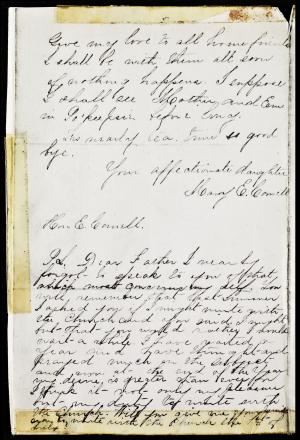 Give my love to all home friends
I shall be with them all soon
if nothing happens. I suppose
I shall see Mother and Em
in Poikeepsie before long.
Its nearly tea time so good
bye.
Your affectionate daughter
Mary E. Cornell
Hon E. Cornell.
P.S. Dear Father I nearly
forgot to speak to you of that
which most concerns my self. You
will remember that last summer
I asked you if I might unite with
the church and you said I might
but that you would rather I would
wait a while I have waited a
year and have thought and
prayed much on the subject
and now at the end of the year
my desire is greater than ever for
I think it not only my pleasure
but my duty to unite with
the church. Will you give me your